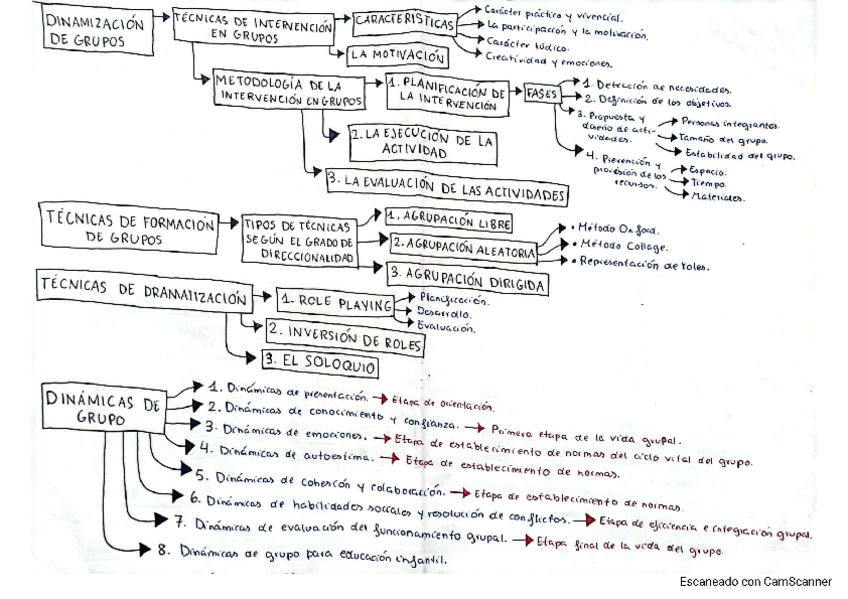 DINAMIZACIÓN
DE GRUPOS
TÉCNICAS DE INTERVENCIÓN
EN GRUPOS
CARACTERÍSTICAS
Carácter práctico y vivencial.
La participación y la motivación.
Carácter lúdico.
Creatividad y emociones.
LA MOTIVACIÓN
METODOLOGÍA DE LA
INTERVENCIÓN EN GRUPOS
1. PLANIFICACIÓN DE
LA INTERVENCIÓN
FASES
1. Detección de necesidades.
2. Definición de los objetivos.
3. Propuesta y
diseño de acti-
vidades.
Personas integrantes.
Tamaño del grupo.
Estabilidad del grupo.
4. Prevención y
provisión de los
recursos.
Espacio.
Tiempo.
Materiales.
2. LA EJECUCIÓN DE LA
ACTIVIDAD
3. LA EVALUACIÓN DE LAS ACTIVIDADES
TÉCNICAS DE FORMACIÓN
DE GRUPOS
TIPOS DE TÉCNICAS
SEGÚN EL GRADO DE
DIRECCIONALIDAD
1. AGRUPACIÓN LIBRE
2. AGRUPACIÓN ALEATORIA
• Método Oxford.
• Método Collage.
• Representación de roles.
3. AGRUPACIÓN DIRIGIDA
TÉCNICAS DE DRAMATIZACIÓN
1. ROLE PLAYING
Planificación.
Desarrollo.
Evaluación.
2. INVERSIÓN DE ROLES
3. EL SOLOQUIO
DINÁMICAS DE
GRUPO
1. Dinámicas de presentación. → Etapa de orientación.
2. Dinámicas de conocimiento y confianza. → Primera etapa de la vida grupal.
3. Dinámicas de emociones. → Etapa de establecimiento de normas del ciclo vital del grupo.
4. Dinámicas de autoestima. → Etapa de establecimiento de normas.
5. Dinámicas de cohesión y colaboración. → Etapa de establecimiento de normas.
6. Dinámicas de habilidades sociales y resolución de conflictos. → Etapa de eficiencia e integración grupal.
7. Dinámicas de evaluación del funcionamiento grupal. → Etapa final de la vida del grupo.
8. Dinámicas de grupo para educación infantil.
Escaneado con CamScanner